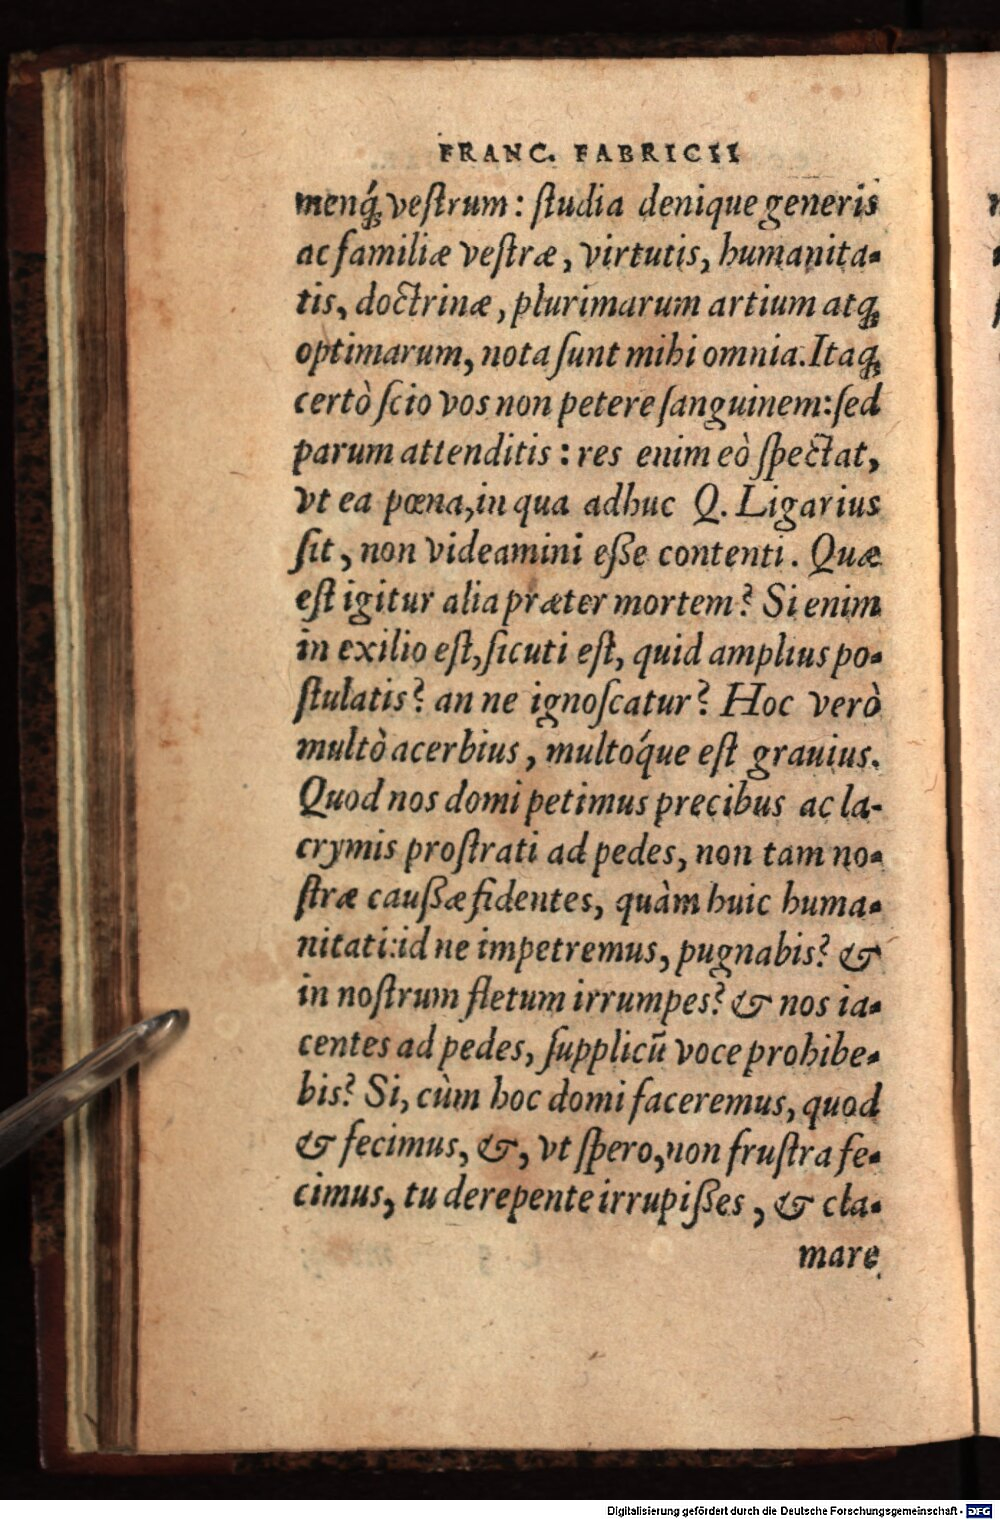 FRANC. FABRICII
menq́; veſtrum: ſtudia denique generis
ac familiæ veſtræ, virtutis, humanita-
tis, doctrinæ, plurimarum artium atq;
optimarum, nota ſunt mihi omnia. Itaq;
certò ſcio vos non petere ſanguinem: ſed
parum attenditis: res enim eò ſpectat,
vt ea pœna, in qua adhuc Q. Ligarius
ſit, non videamini eſſe contenti. Quæ
eſt igitur alia præter mortem? Si enim
in exilio eſt, ſicuti eſt, quid amplius po-
ſtulatis? an ne ignoſcatur? Hoc verò
multò acerbius, multóque eſt grauius.
Quod nos domi petimus precibus ac la-
crymis proſtrati ad pedes, non tam no-
ſtræ cauſſæ fidentes, quàm huic huma-
nitati: id ne impetremus, pugnabis? &
in noſtrum fletum irrumpes? & nos ia-
centes ad pedes, ſupplicū voce prohibe-
bis? Si, cùm hoc domi faceremus, quod
& fecimus, &, vt ſpero, non fruſtra fe-
cimus, tu derepente irrupiſſes, & cla-
mare
Digitalisierung gefördert durch die Deutsche Forschungsgemeinschaft - DFG